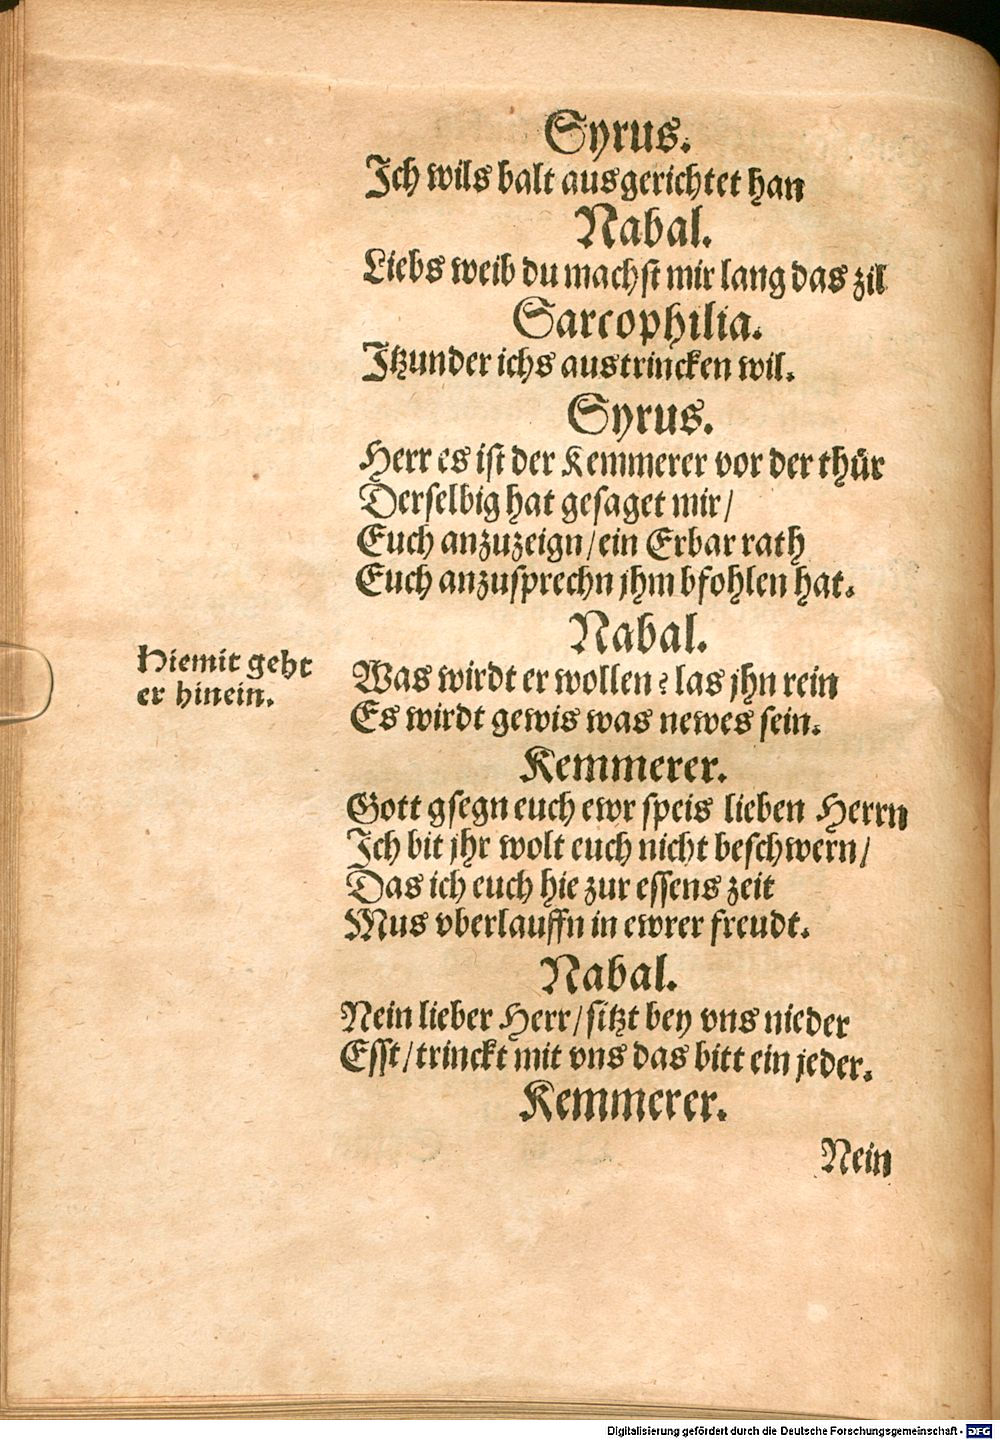 Syrus.
Ich wils balt ausgerichtet han
Nabal.
Liebs weib du machst mir lang das zil
Sarcophilia.
Itzunder ichs austrincken wil.
Syrus.
Herr es ist der Kemmerer vor der thür
Derselbig hat gesaget mir/
Euch anzuzeign/ein Erbar rath
Euch anzusprechn jhm bfohlen hat.
Nabal.
Hiemit geht
er hinein.
Was wirdt er wollen? las jhn rein
Es wirdt gewis was newes sein.
Kemmerer.
Gott gsegn euch ewr speis lieben Herrn
Ich bit jhr wolt euch nicht beschwern/
Das ich euch hie zur essens zeit
Mus vberlauffn in ewrer freudt.
Nabal.
Nein lieber Herr/sitzt bey vns nieder
Esst/trinckt mit vns das bitt ein jeder.
Kemmerer.
Nein
Digitalisierung gefördert durch die Deutsche Forschungsgemeinschaft - DFG